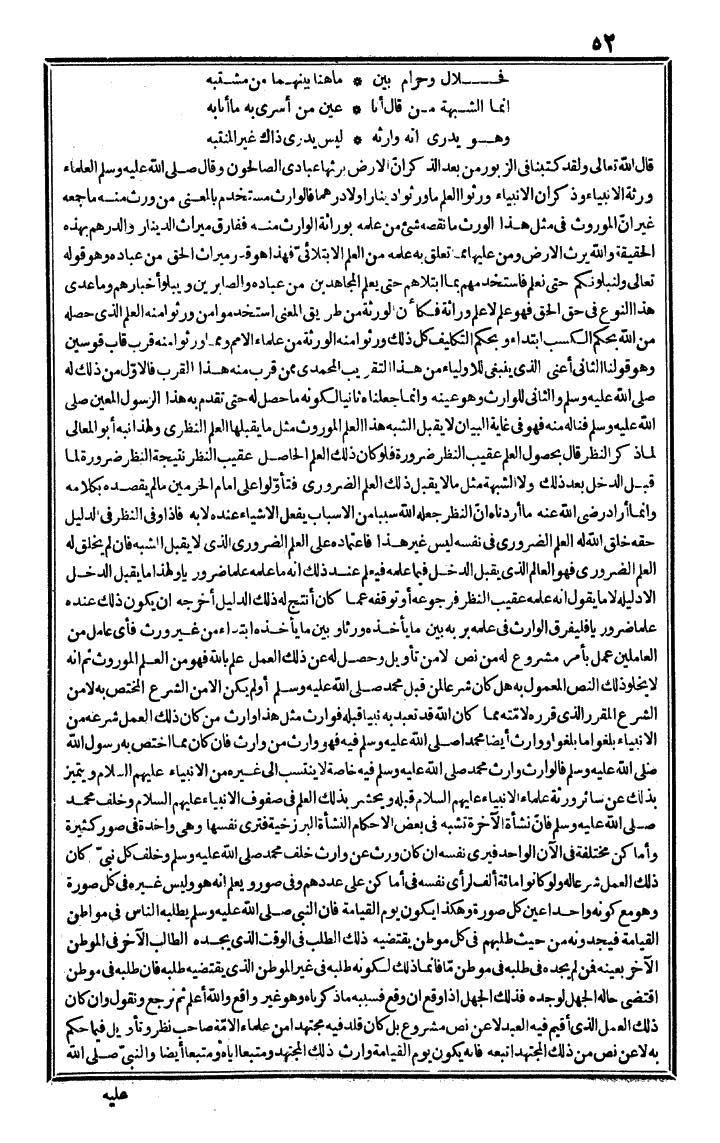 ٥٢
فحلال وحرام بين * ماهنا بينهما من مشتبه
انما الشبهة من قال أنا * عين من أسرى به ما أنا به
وهو يدرى انه وارثه * ليس يدرى ذاك غير المنتبه
قال الله تعالى ولقد كتبنا فى الزبور من بعد الذكر ان الارض يرثها عبادى الصالحون وقال صلى الله عليه وسلم العلماء
ورثة الانبياء وذكر ان الانبياء ورثوا العلم ما ورثوا دينارا ولا درهما فالوارث مستخدم بالمعنى من ورث منه ما جمعه
غير ان الموروث فى مثل هذا الورث ما نقصه شئ من علمه بوراثة الوارث منه ففارق ميراث الدينار والدرهم بهذه
الحقيقة والله يرث الارض ومن عليها مما تعلق به علمه من العلم الابتلائى فهذا هو قدر ميراث الحق من عباده وهو قوله
تعالى ولنبلونكم حتى نعلم فاستخدمهم بما ابتلاهم حتى يعلم المجاهدين من عباده والصابرين ويبلو أخبارهم وما عدى
هذا النوع فى حق الحق فهو علم لا علم وراثة فكأن الورثة من طريق المعنى استخدموا من ورثوا منه العلم الذى حصله
من الله بحكم الكسب ابتداء وبحكم التكليف كل ذلك ورثوا منه الورثة من علماء الامم ومما ورثوا منه قرب قاب قوسين
وهو قولنا الثانى أعنى الذى ينبغى للاولياء من هذا التقريب المحمدى ممن قرب منه هذا القرب فالاول من ذلك له
صلى الله عليه وسلم والثانى للوارث وهو عينه وانما جعلناه ثانيا لكونه ما حصل له حتى تقدم به هذا الرسول المعين صلى
الله عليه وسلم فناله منه فهو فى غاية البيان لا يقبل الشبه هذا العلم الموروث مثل ما يقبلها العلم النظرى ولهذا نبه أبو المعالى
لما ذكر النظر قال بحصول العلم عقيب النظر ضرورة فلو كان ذلك العلم الحاصل عقيب النظر نتيجة النظر ضرورة لما
قبل الدخل بعد ذلك ولا الشبهة مثل ما لا يقبل ذلك العلم الضرورى فتأولوا على امام الحرمين ما لم يقصده بكلامه
وانما أراد رضى الله عنه ما أردناه ان النظر جعله الله سببا من الاسباب يفعل الاشياء عنده لا به فاذا وفى النظر فى الدليل
حقه خلق الله له العلم الضرورى فى نفسه ليس غير هذا فاعتماده على العلم الضرورى الذى لا يقبل الشبه فان لم يخلق له
العلم الضرورى فهو العالم الذى يقبل الدخل فيما علمه فيعلم عند ذلك انه ما علمه علما ضروريا ولهذا ما يقبل الدخل
الادليله لا ما يقول انه علمه عقيب النظر فرجوعه أو توقفه عما كان أنتج له ذلك الدليل أخرجه ان يكون ذلك عنده
علما ضروريا فليفرق الوارث فى علمه بربه بين ما يأخذه ورثا وبين ما يأخذه ابتداء من غير ورث فأى عامل من
العاملين عمل بأمر مشروع له من نص لا من تأويل وحصل له عن ذلك العمل علم بالله فهو من العلم الموروث ثم انه
لا يخلو ذلك النص المعمول به هل كان شرعا لمن قبل محمد صلى الله عليه وسلم أو لم يكن الا من الشرع المختص به لا من
الشرع المقرر الذى قرره لامته مما كان الله قد تعبد به نبيا قبله فوارث مثل هذا وارث من كان ذلك العمل شرعه من
الانبياء بلغوا ما بلغوا ووارث أيضا محمدا صلى الله عليه وسلم فيه فهو وارث من وارث فان كان مما اختص به رسول الله
صلى الله عليه وسلم فالوارث وارث محمد صلى الله عليه وسلم فيه خاصة لا ينتسب الى غيره من الانبياء عليهم السلام ويتميز
بذلك عن سائر ورثة علماء الانبياء عليهم السلام قبله ويحشر بذلك العلم فى صفوف الانبياء عليهم السلام وخلف محمد
صلى الله عليه وسلم فان نشأة الآخرة تشبه فى بعض الاحكام النشأة البرزخية فترى نفسها وهى واحدة فى صور كثيرة
وأما كن مختلفة فى الآن الواحد فيرى نفسه ان كان ورث عن وارث خلف محمد صلى الله عليه وسلم وخلف كل نبى كان
ذلك العمل شرعا له ولو كانوا مائة ألف لرأى نفسه فى أماكن على عددهم وفى صور ويعلم انه هو وليس غيره فى كل صورة
وهو مع كونه واحدا عين كل صورة وهكذا يكون يوم القيامة فان النبى صلى الله عليه وسلم يطلبه الناس فى مواطن
القيامة فيجدونه من حيث طلبهم فى كل موطن يقتضيه ذلك الطلب فى الوقت الذى يجده الطالب الآخر فى الموطن
الآخر بعينه فمن لم يجده فى طلبه فى موطن ما فانما ذلك لكونه طلبه فى غير الموطن الذى يقتضيه طلبه فان طلبه فى موطن
اقتضى حاله الجهل لوجده فذلك الجهل اذا وقع ان وقع فسببه ما ذكرناه وهو غير واقع والله أعلم ثم رجع ونقول وان كان
ذلك العمل الذى أقيم فيه العبد لا عن نص مشروع بل كان قلد فيه مجتهدا من علماء الامة صاحب نظر وتأويل فيما حكم
به لا عن نص من ذلك المجتهد اتبعه فانه يكون يوم القيامة وارث ذلك المجتهد ومتبعا اياه ومتبعا أيضا والنبى صلى الله
عليه